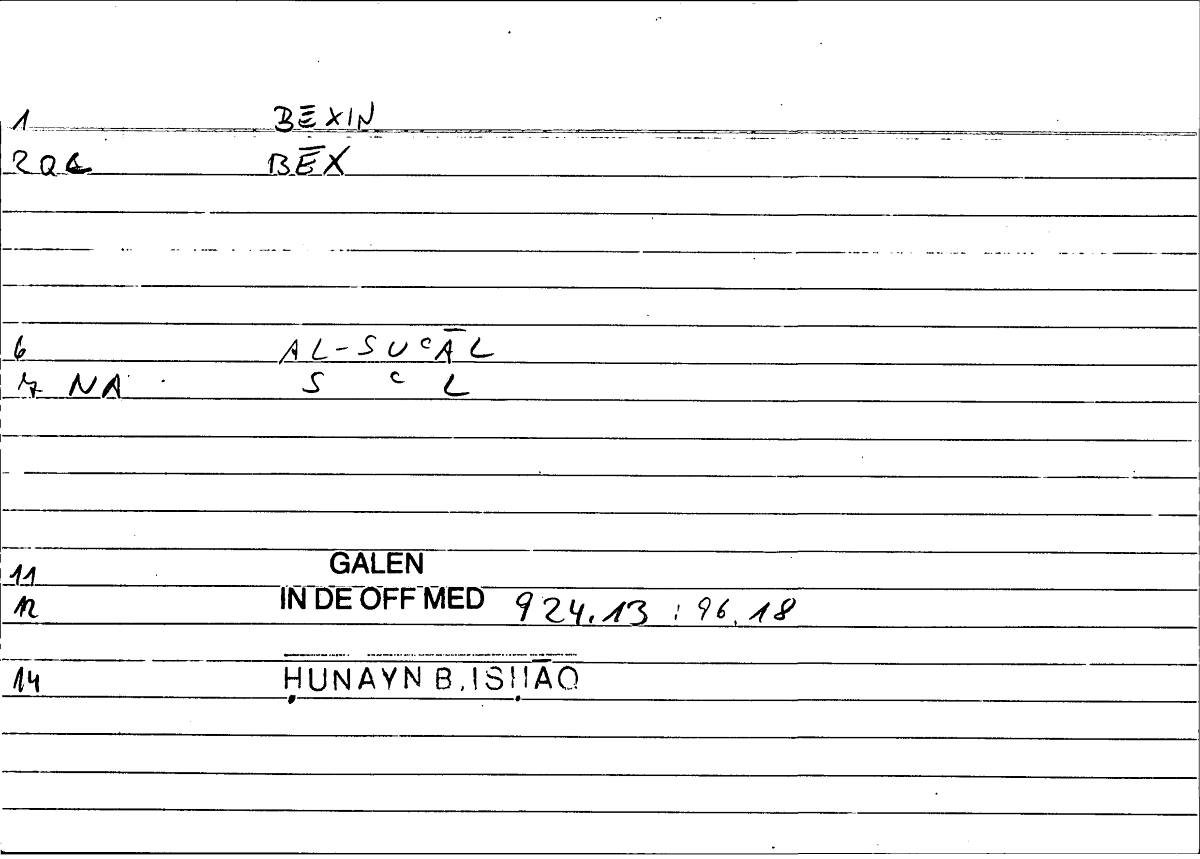 1 BĒXIN
2 Q C BĒX
6 AL-SUᶜĀL
7 NA S ᶜ L
11 GALEN
12 IN DE OFF MED 924.13 : 96.18
14 ḤUNAYN B. ISḤĀQ